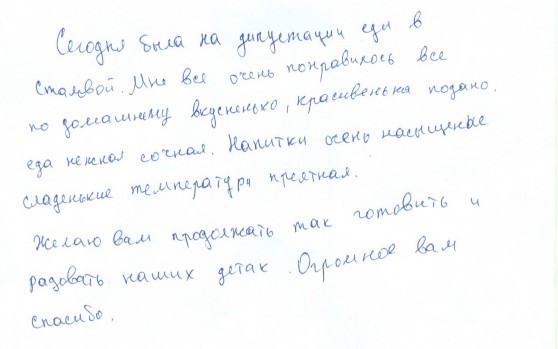 Сегодня была на дипустации еды в
сталовой. Мне все очень понравилось все
по домашнему вкусненько, красивенька подано.
еда нежная сочная. Напитки осень насыщеные
сладенькие температура преятная.
Желаю вам продолжать так готовить и
радовать наших деток. Огромное вам
спасибо.